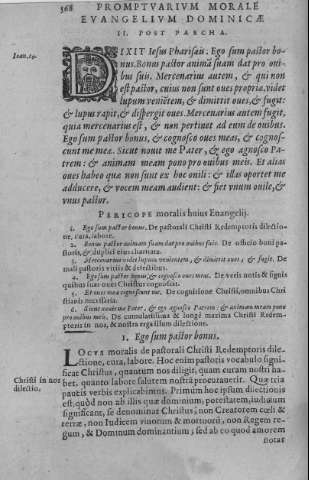 568 PROMPTVARIVM MORALE
EVANGELIVM DOMINICÆ
II. POST PASCHA.
Ioan. 10.
DIXIT Iesus Pharisæis. Ego sum pastor bo-
nus. Bonus pastor animã suam dat pro oui-
bus suis. Mercenarius autem, & qui non
est pastor, cuius non sunt oues propriæ, videt
lupum veniẽtem, & dimittit oues, & fugit:
& lupus rapit, & dispergit oues. Mercenarius autem fugit,
quia mercenarius est, & non pertinet ad eum de ouibus.
Ego sum pastor bonus, & cognosco oues meas, & cognos-
cunt me meæ. Sicut nouit me Pater, & ego agnosco Pa-
trem: & animam meam pono pro ouibus meis. Et alias
oues habeo quæ non sunt ex hoc ouili: & illas oportet me
adducere, & vocem meam audient: & fiet vnum ouile, &
vnus pastor.
PERICOPE moralis huius Euangelij.
1. Ego sum pastor bonus. De pastorali Christi Redemptoris dilectio-
ne, cura, labore.
2. Bonus pastor animam suam dat pro ouibus suis. De officio boni pa-
storis, & duplici eius charitate.
3. Mercenarius videt lupum venientem, & dimittit oues, & fugit. De
mali pastoris vitiis &
4. Ego sum pastor bonus, & cognosco oues meas. De veris notis & signis
quibus suas oues Christus cognoscit.
5. Et oues meæ cognoscunt me. De cognitione Christi, omnibus Chri-
stianis necessaria.
6. Sicut nouit me Pater, & ego agnosco Patrem: & animam meam pono
pro ouibus meis. De cumulatissima & longè maxima Christi Redem-
ptoris in nos, & nostra erga illum dilectione.
1. Ego sum pastor bonus.
LOCVS moralis de pastorali Christi Redemptoris dile-
ctione, cura, labore. Hoc enim pastoris vocabulo signi-
ficat Christus, quantum nos diligit, quam curam nostri ha-
bet, quanto labore salutem nostrã procurauerit. Quæ tria
Christi in nos
dilectio.
paucis verbis explicabimus. Primùm hoc ipsum dilectionis
est, quòd non ab illis quæ dominium, potestatem, iudicium
significant, se denominat Christus, non Creatorem cœli &
terræ, non Iudicem viuorum & mortuorũ, non Regem re-
gum, & Dominum dominantium; sed ab eo quod amorem
notat